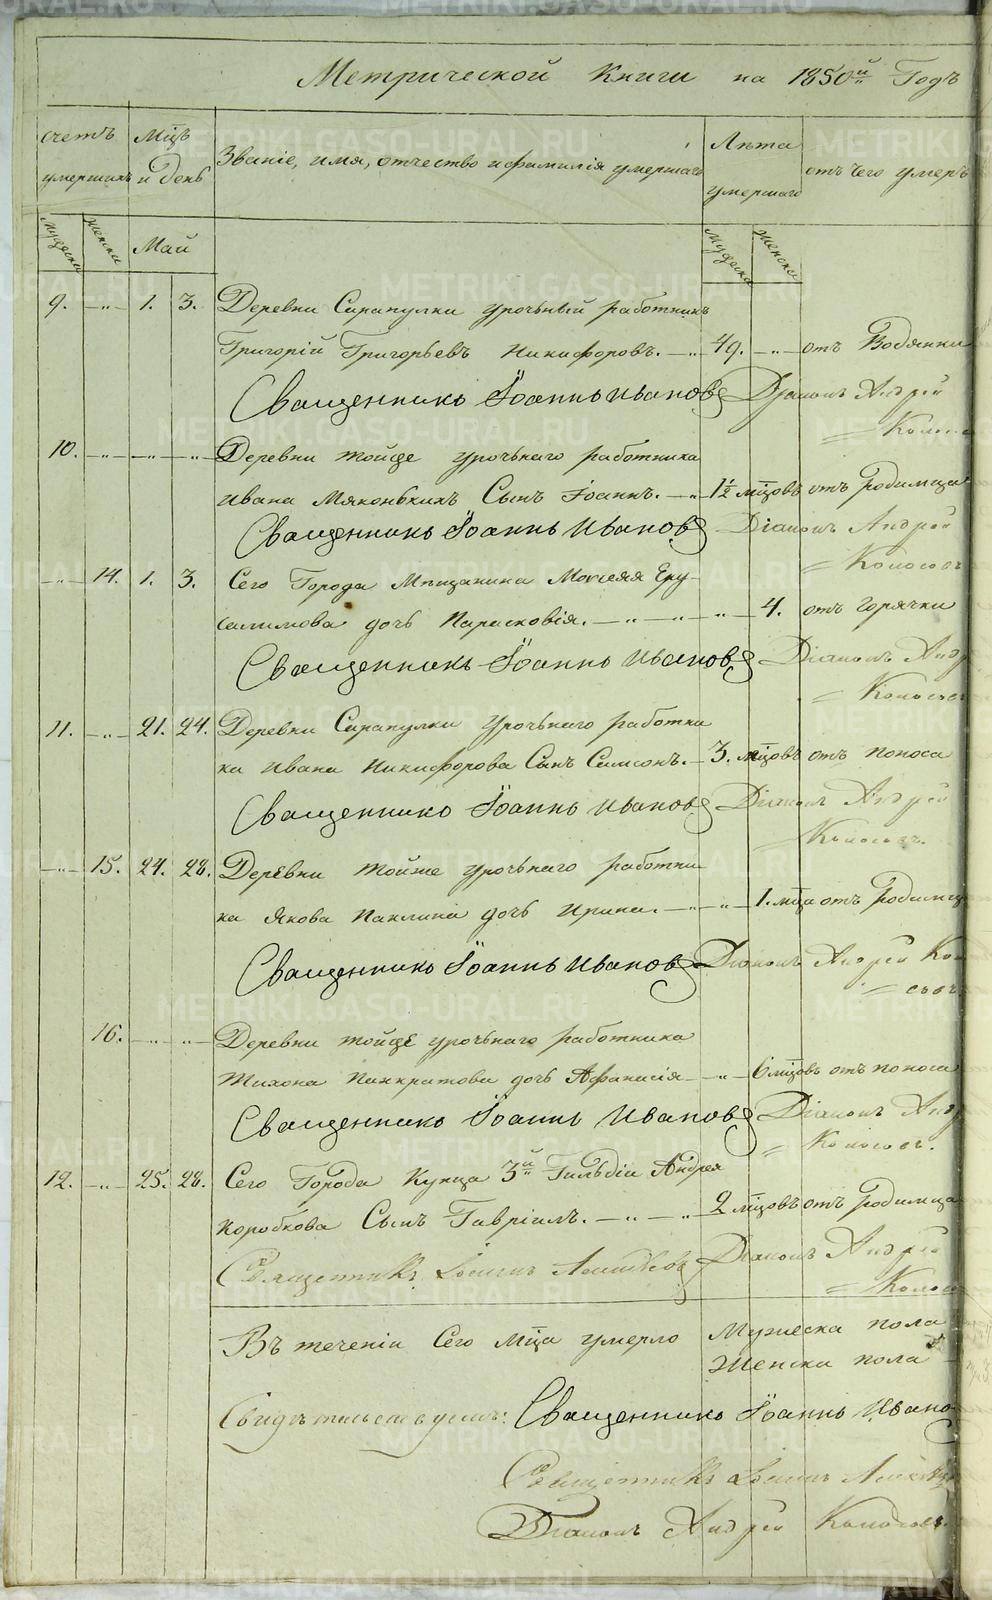 Метрической Книги на 1850й Годъ
счетъ умершихъ
Мцъ и день
Званіе, имя, отчество и фамилія умершаго
Лѣта умершаго
отъ чего умеръ
Мужеска
Женска
Май
Мужеска
Женска
9. -„- 1. 3. Деревни Сарапулки урочный работникъ
Григорій Григорьевъ Никифоровъ. -„- 49. -„- отъ Водянки
Священникъ Іоаннъ Ивановъ Діаконъ Андрей
10. -„- -„- -„- Деревни тойже урочнаго работника
Ивана Мяконькихъ Сынъ Іоаннъ. -„- 1½ мцовъ отъ родимца
Священникъ Іоаннъ Ивановъ Діаконъ Андрей
Колосовъ
-„- 14. 1. 3. Сего Города Мещанина Моисея Еру-
салимова дочь Парасковія. -„- -„- „ 4. отъ горячки
Священникъ Іоаннъ Ивановъ Діаконъ Андр
Колосовъ
11. -„- 21. 24. Деревни Сарапулки Урочнаго работни
ка Ивана Никифорова Сынъ Самсонъ. 3. мцовъ отъ поноса
Священникъ Іоаннъ Ивановъ Діаконъ Андрей
Колосовъ.
-„- 15. 24. 28. Деревни тойже урочнаго работни
ка Якова Паклина дочь Ирина. -„- „ 1. мца отъ родимца
Священникъ Іоаннъ Ивановъ Діаконъ Андрей Коло
совъ
16. -„- „- Деревни тойже урочнаго работника
Тихона Панкратова дочь Афанасія -„- 6 мцовъ отъ поноса
Священникъ Іоаннъ Ивановъ Діаконъ Андр
Колосовъ.
12. -„- 25. 28. Сего Города Купца 3й Гильдіи Андрея
Коробкова Сынъ Гавріилъ. -„- „ 2 мцовъ отъ родимца
Священникъ Іоаннъ Діаконъ Андрей
Колосо
Въ теченіи Сего Мца умерло Мужеска пола
Женска пола
Свидѣтельствуемъ: Священникъ Іоаннъ Ивано
Священникъ Іоаннъ
Діаконъ Андрей Колосовъ.
METRIKI.GASO-URAL.RU